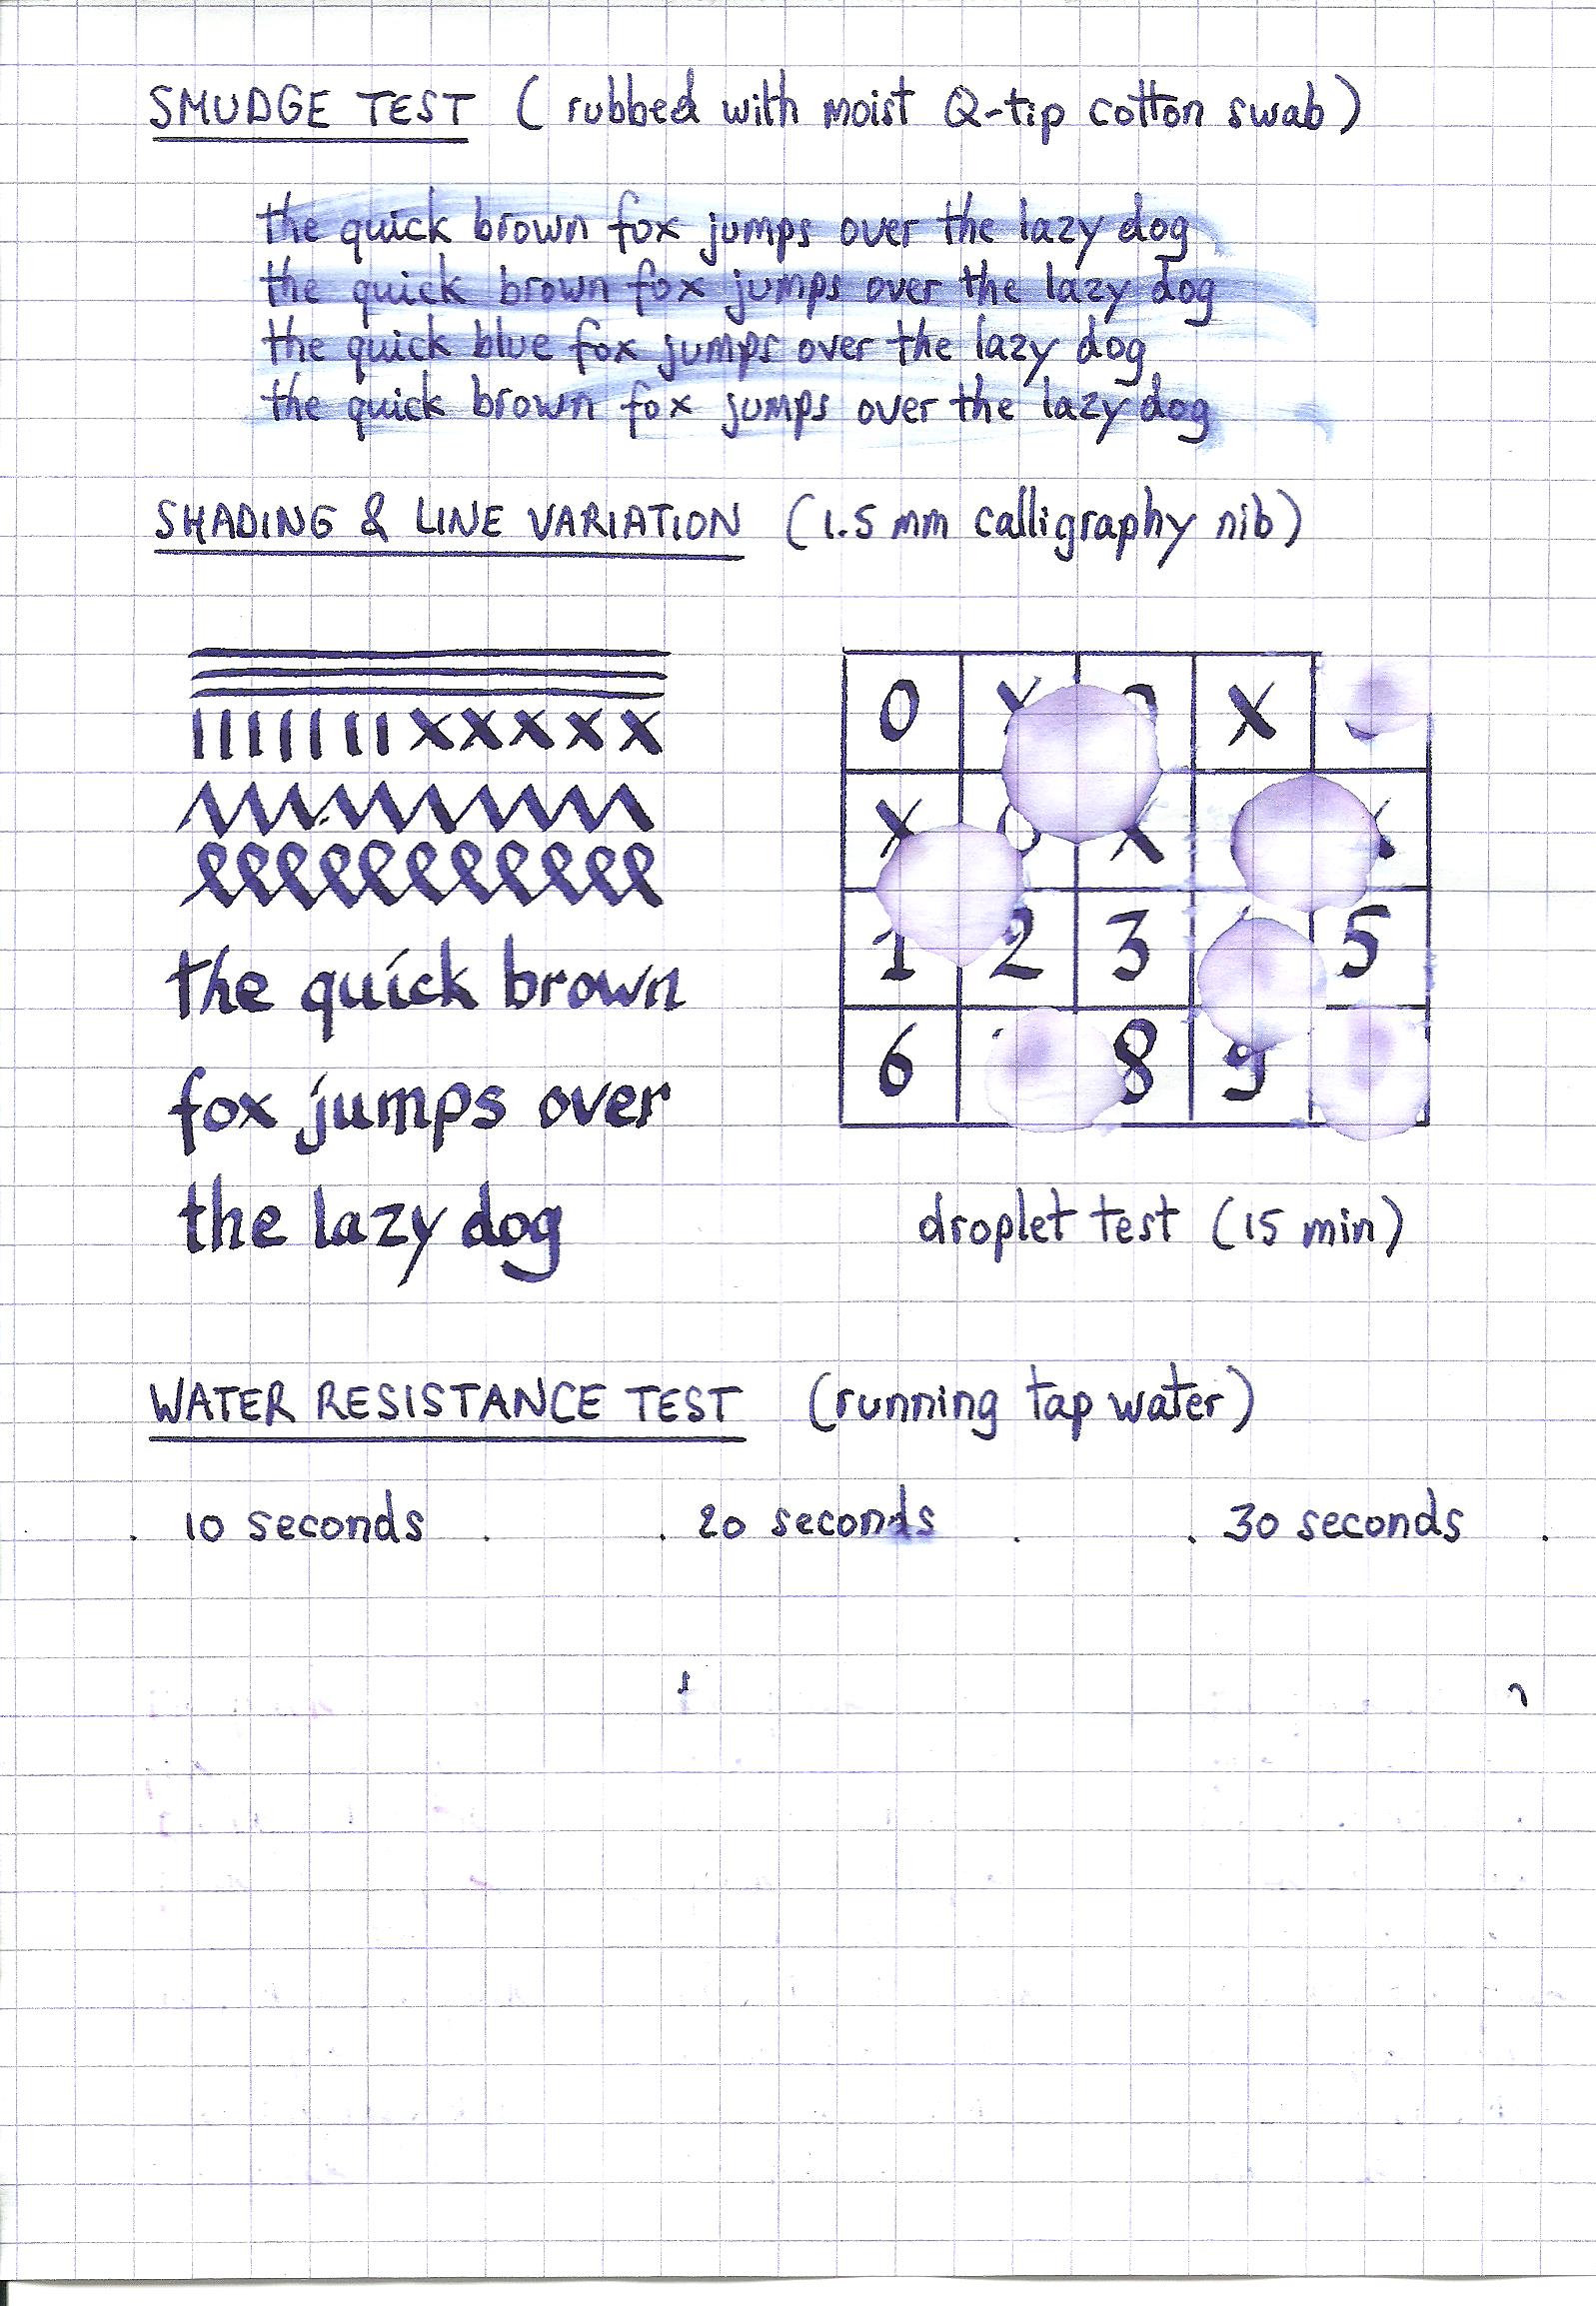 SMUDGE TEST (rubbed with moist Q-tip cotton swab)
the quick brown fox jumps over the lazy dog
the quick brown fox jumps over the lazy dog
the quick blue fox jumps over the lazy dog
the quick brown fox jumps over the lazy dog
SHADING & LINE VARIATION (1.5 mm calligraphy nib)
the quick brown
fox jumps over
the lazy dog
0 X X
X X
1 2 3 5
6 8 9
droplet test (15 min)
WATER RESISTANCE TEST (running tap water)
. 10 seconds . . 20 seconds . . 30 seconds .